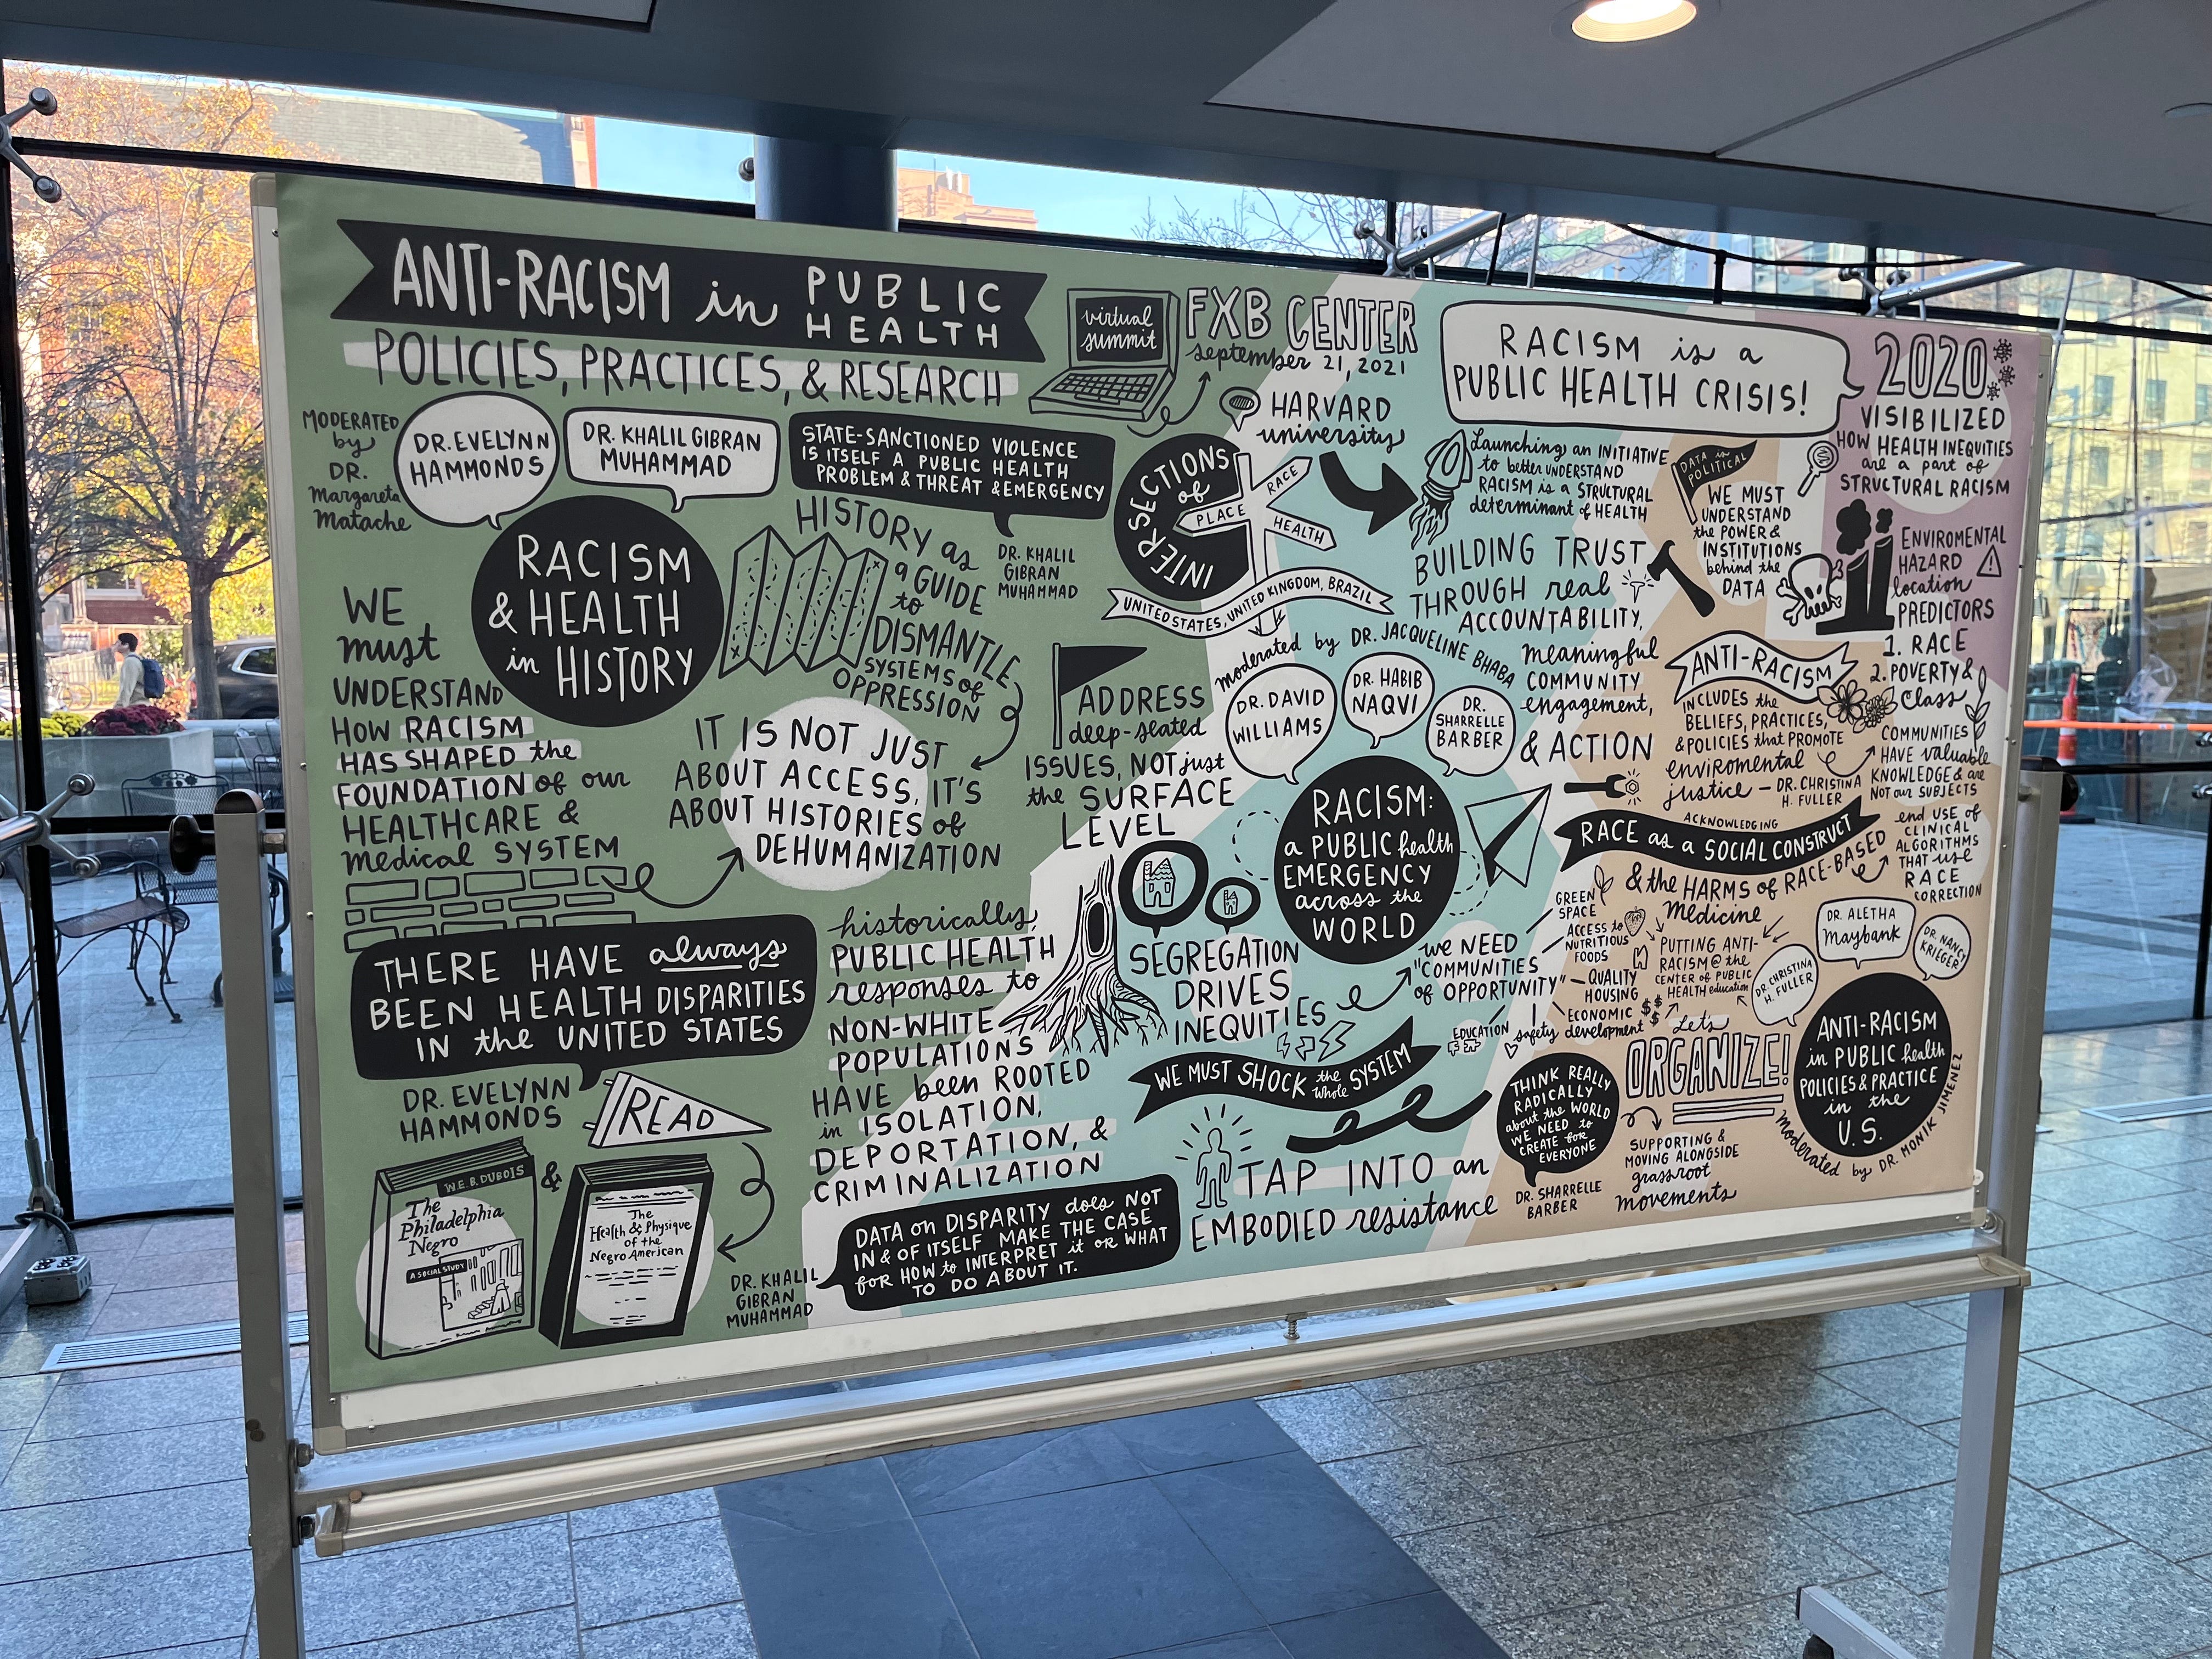 ANTI-RACISM in PUBLIC
HEALTH
POLICIES, PRACTICES, & RESEARCH
virtual
summit
FXB CENTER
september 21, 2021
HARVARD
university
MODERATED
by
DR.
Margareta
Matache
DR. EVELYNN
HAMMONDS
DR. KHALIL GIBRAN
MUHAMMAD
RACISM
& HEALTH
in HISTORY
STATE-SANCTIONED VIOLENCE
IS ITSELF A PUBLIC HEALTH
PROBLEM & THREAT & EMERGENCY
DR. KHALIL
GIBRAN
MUHAMMAD
HISTORY as
a GUIDE
to
DISMANTLE
SYSTEMS of
OPPRESSION
WE
must
UNDERSTAND
HOW RACISM
HAS SHAPED the
FOUNDATION of our
HEALTHCARE &
medical SYSTEM
IT IS NOT JUST
ABOUT ACCESS, IT'S
ABOUT HISTORIES of
DEHUMANIZATION
ADDRESS
deep-seated
ISSUES, NOT just
the SURFACE
LEVEL
THERE HAVE always
BEEN HEALTH DISPARITIES
IN the UNITED STATES
DR. EVELYNN
HAMMONDS
READ
W.E.B. DUBOIS
The
Philadelphia
Negro
A SOCIAL STUDY
&
The
Health & Physique
of the
Negro American
historically,
PUBLIC HEALTH
responses to
NON-WHITE
POPULATIONS
HAVE been ROOTED
in ISOLATION,
DEPORTATION, &
CRIMINALIZATION
DATA on DISPARITY does NOT
IN & OF ITSELF MAKE THE CASE
for HOW to INTERPRET it OR WHAT
TO DO ABOUT IT.
DR. KHALIL
GIBRAN
MUHAMMAD
INTERSECTIONS
of
RACE
PLACE
HEALTH
UNITED STATES, UNITED KINGDOM, BRAZIL
moderated by DR. JACQUELINE BHABA
DR. DAVID
WILLIAMS
DR. HABIB
NAQVI
DR.
SHARRELLE
BARBER
RACISM:
a PUBLIC health
EMERGENCY
across the
WORLD
SEGREGATION
DRIVES
INEQUITIES
we NEED
"COMMUNITIES
of OPPORTUNITY"
GREEN
SPACE
ACCESS to
NUTRITIOUS
FOODS
QUALITY
HOUSING
ECONOMIC
development
safety
EDUCATION
WE MUST SHOCK the whole SYSTEM
TAP INTO an
EMBODIED resistance
THINK REALLY
RADICALLY
about the WORLD
WE NEED to
CREATE for
EVERYONE
DR. SHARRELLE
BARBER
RACISM is a
PUBLIC HEALTH CRISIS!
Launching an INITIATIVE
to better UNDERSTAND
RACISM is a STRUCTURAL
determinant of HEALTH
BUILDING TRUST
THROUGH real
ACCOUNTABILITY,
meaningful
COMMUNITY
engagement,
& ACTION
DATA is
POLITICAL
WE MUST
UNDERSTAND
the POWER &
INSTITUTIONS
behind the
DATA
2020
VISIBILIZED
HOW HEALTH INEQUITIES
are a part of
STRUCTURAL RACISM
ENVIROMENTAL
HAZARD
location
PREDICTORS
1. RACE
2. POVERTY &
Class
ANTI-RACISM
INCLUDES the
BELIEFS, PRACTICES,
& POLICIES that PROMOTE
enviromental
justice — DR. CHRISTINA
H. FULLER
COMMUNITIES
HAVE valuable
KNOWLEDGE & are
NOT our SUBJECTS
ACKNOWLEDGING
RACE as a SOCIAL CONSTRUCT
& the HARMS of RACE-BASED
Medicine
end USE of
CLINICAL
ALGORITHMS
THAT use
RACE
CORRECTION
PUTTING ANTI-
RACISM @ the
CENTER of PUBLIC
HEALTH education
DR. CHRISTINA
H. FULLER
DR. ALETHA
Maybank
DR. NANCY
KRIEGER
ANTI-RACISM
in PUBLIC health
POLICIES & PRACTICE
in the
U.S.
moderated by DR. MONIK JIMENEZ
Let's
ORGANIZE!
SUPPORTING &
MOVING ALONGSIDE
grassroot
movements